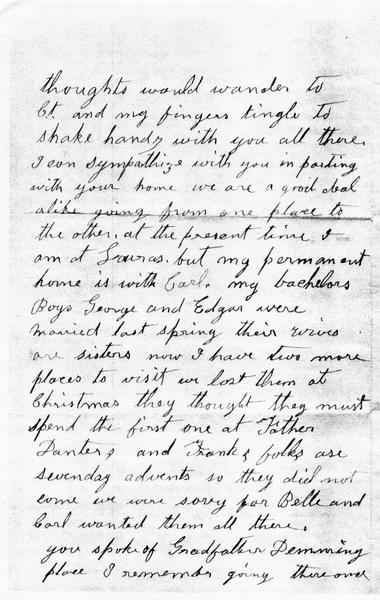 thoughts would wander to
Ct. and my fingers tingle to
shake handz with you all there.
I can sympathize with you in parting
with your home we are a good deal
alike going from one place to
the other. at the present time I
am at Lauras. but my permanent
home is with Carl. my bachelors
Boys George and Edgar were
married last spring their wives
are sisters now I have two more
places to visit we lost them at
Christmas they thought they must
spend the first one at Father
and Franks folks are
sevenday advents so they did not
come we were sorry for Belle and
Carl wanted them all there.
you spoke of Gradfather Demming
place I remember going there once